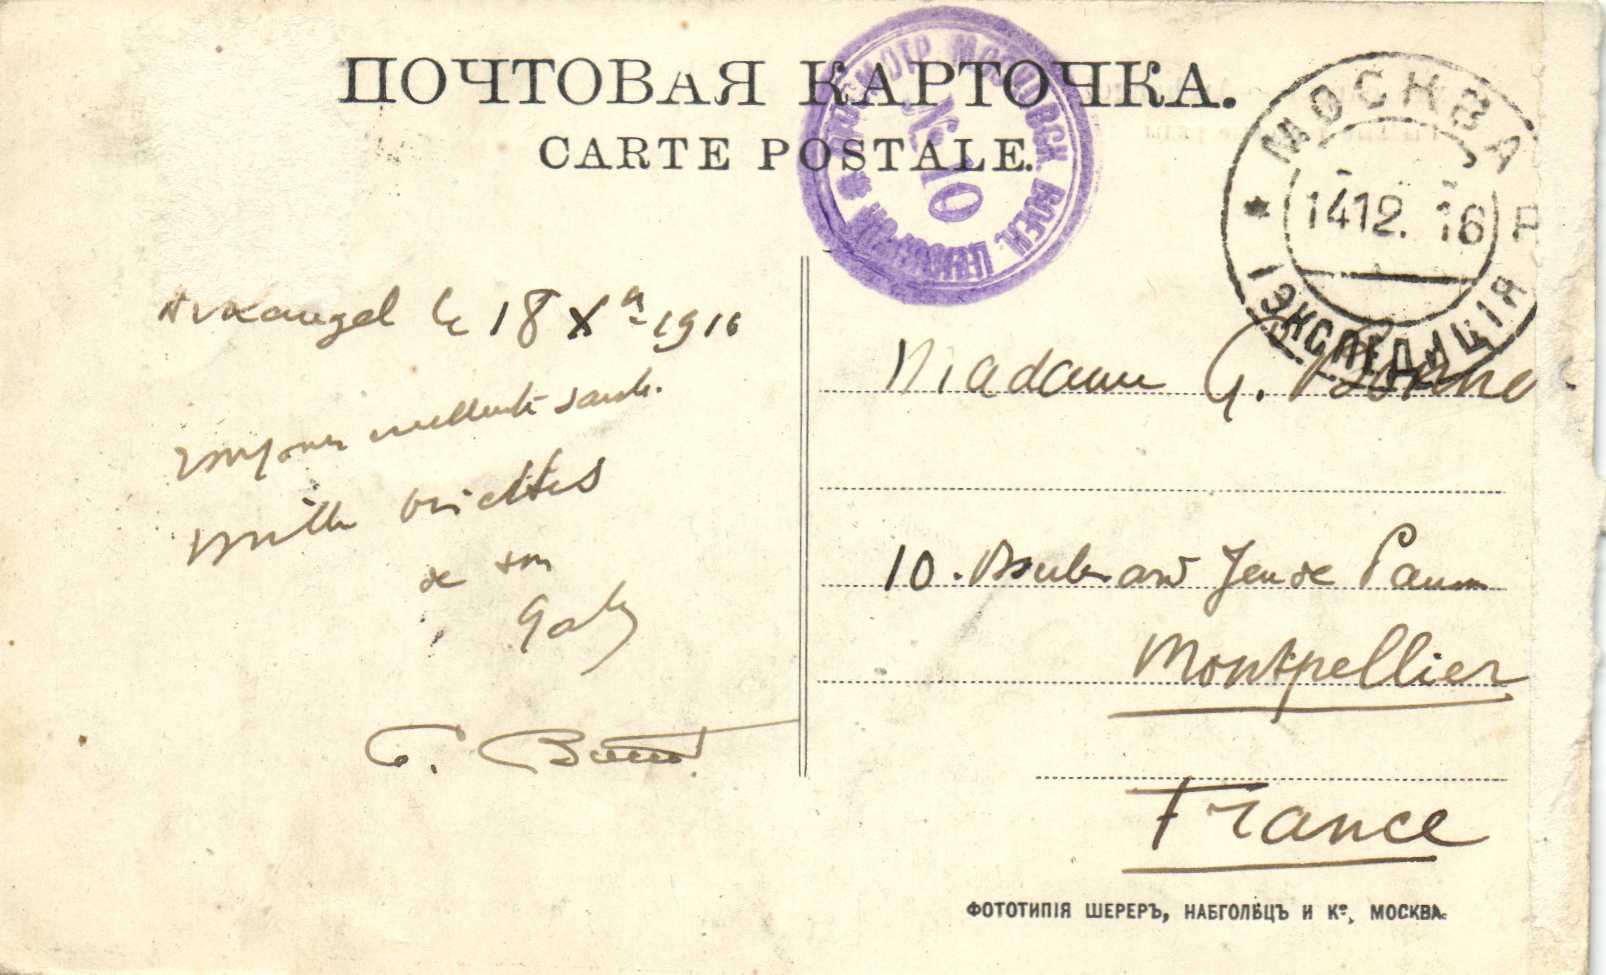 ПОЧТОВАЯ КАРТОЧКА.
CARTE POSTALE.
ПРОСМОТР. МОСКОВСК. ВОЕН. ЦЕНЗУРОЙ
№ 10
МОСКВА
14 12. 16
1 ЭКСПЕДИЦІЯ
Arkangel le 18 Xᵃ 1916
santé.
Mille
de ton
Gaby
G.
Madame G.
10. Boulevard Jeu de Paume
Montpellier
France
ФОТОТИПІЯ ШЕРЕРЪ, НАБГОЛЬЦЪ И Кº, МОСКВА.